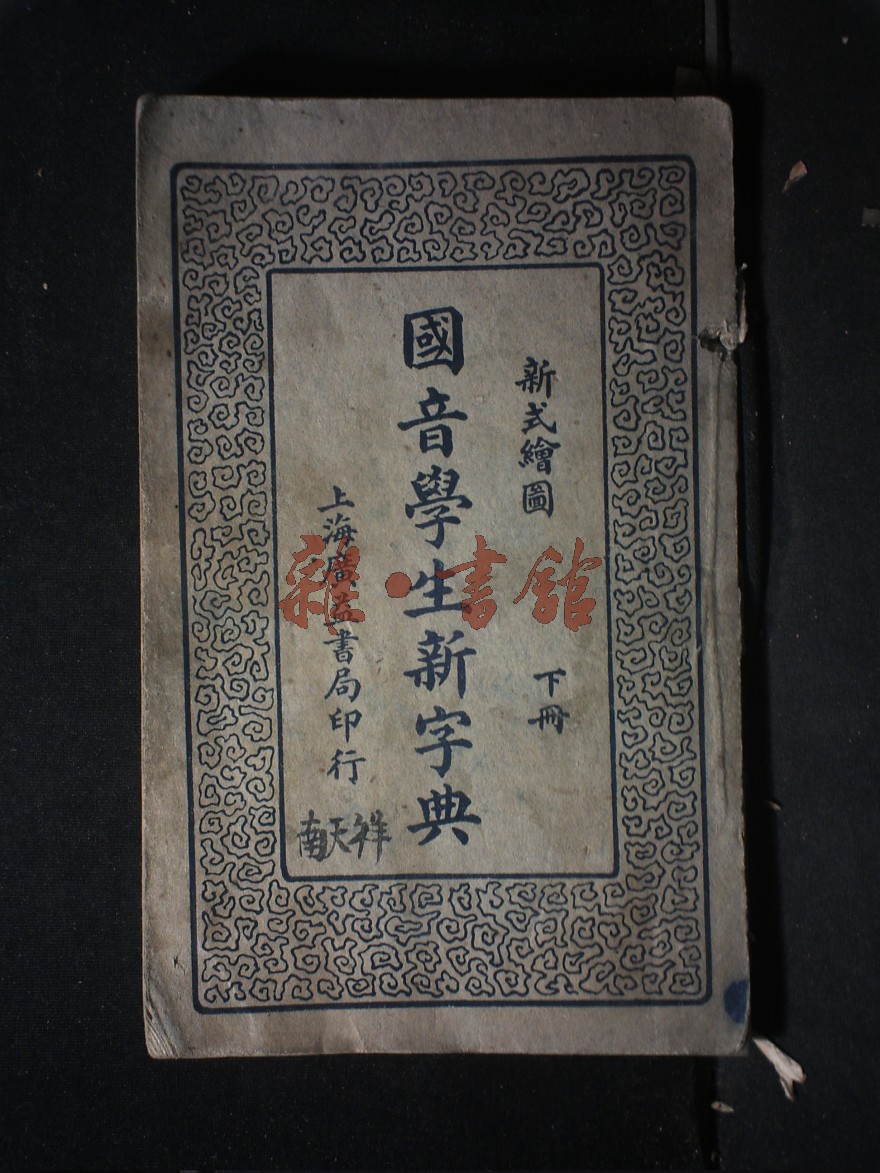 新式繪圖
下冊
國音學生新字典
上海廣益書局印行
南天祥
雜·書館